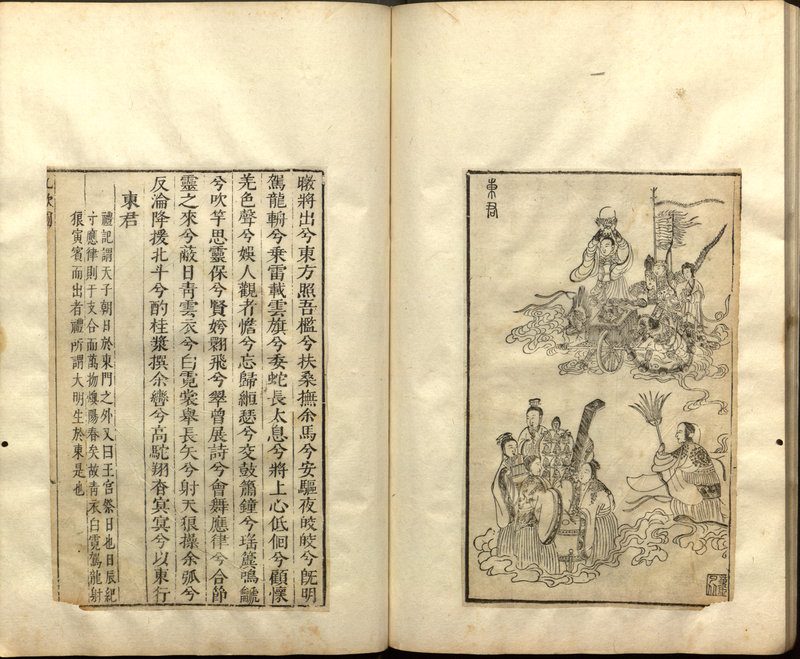 東君
暾將出兮東方照吾檻兮扶桑撫余馬兮安驅夜皎皎兮旣明
駕龍輈兮乘雷載雲旗兮委蛇長太息兮將上心低佪兮顧懷
羌色聲兮娛人觀者憺兮忘歸緪瑟兮交鼓簫鐘兮瑤簴鳴䶵
兮吹竽思靈保兮賢姱翾飛兮翠曾展詩兮會舞應律兮合節
靈之來兮蔽日青雲衣兮白霓裳舉長矢兮射天狼操余弧兮
反淪降援北斗兮酌桂漿撰余轡兮高駝翔杳冥冥兮以東行
東君
禮記謂天子朝日於東門之外又曰王宮祭日也日辰紀
于應律則干支合而萬物燠陽春矣故青衣白霓駕龍射
狼寅賓而出者禮所謂大明生於東是也